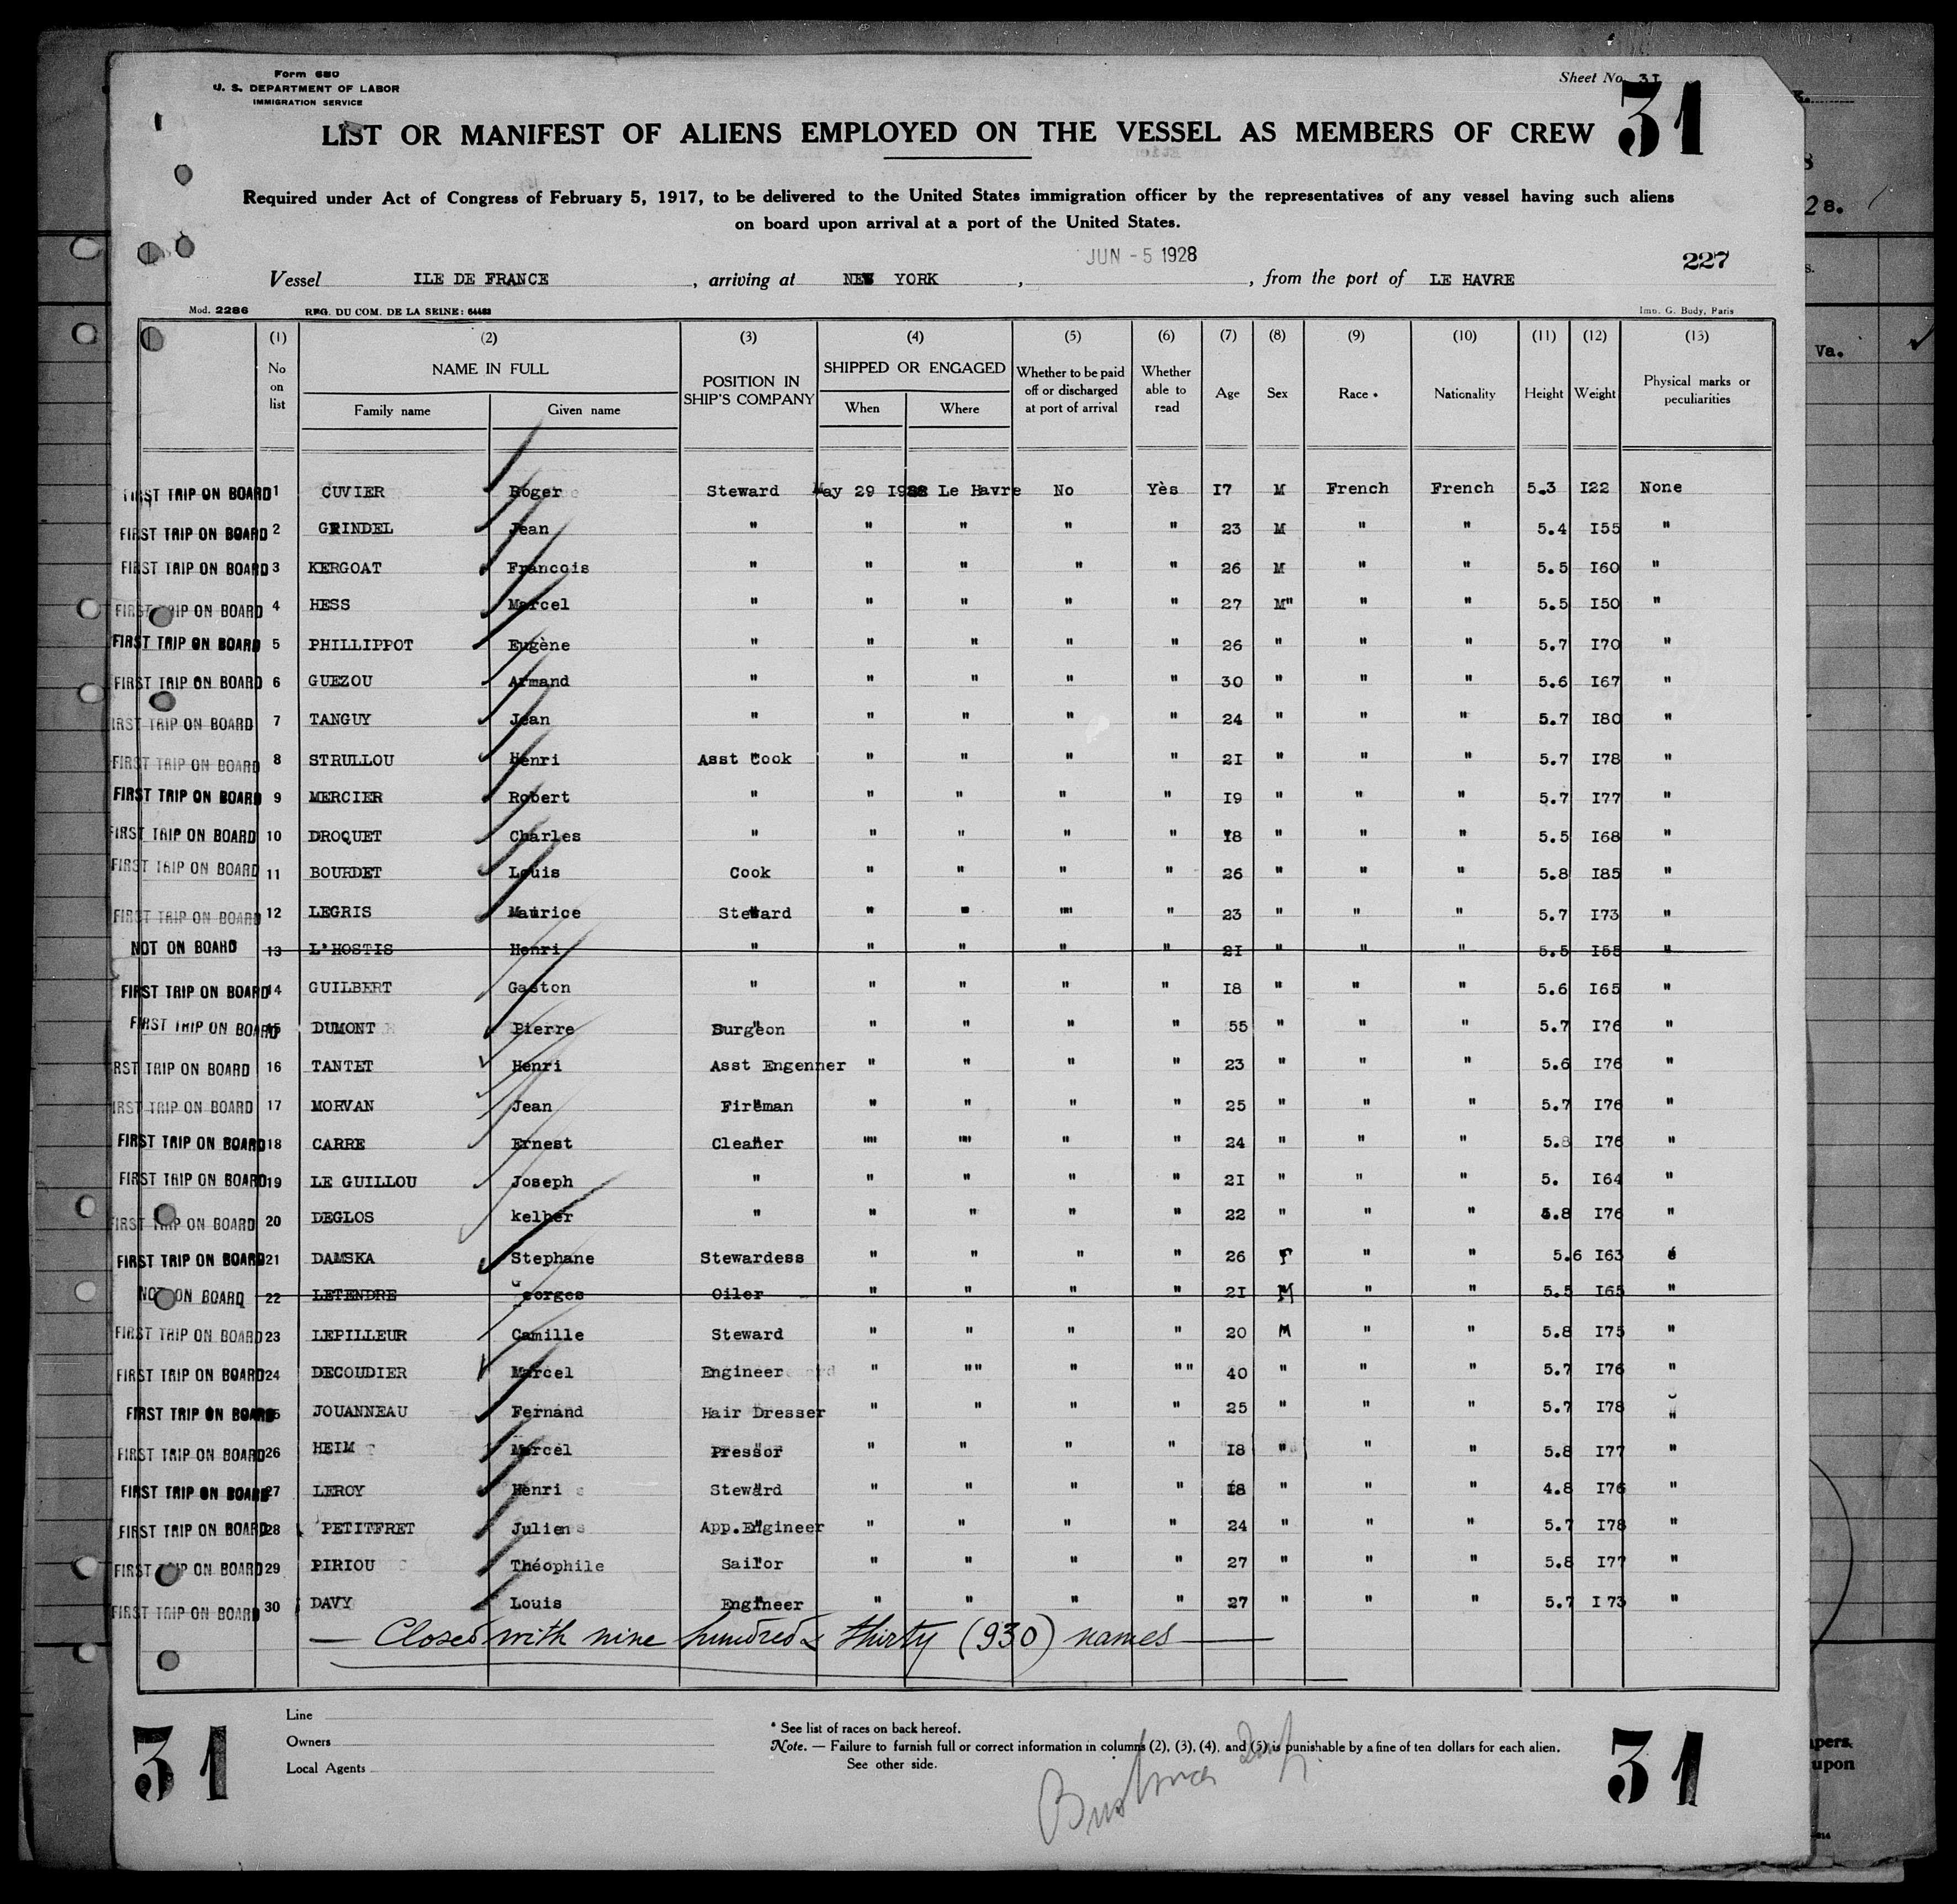 Form 680
U. S. DEPARTMENT OF LABOR
IMMIGRATION SERVICE
Sheet No 3I
31
LIST OR MANIFEST OF ALIENS EMPLOYED ON THE VESSEL AS MEMBERS OF CREW
Required under Act of Congress of February 5, 1917, to be delivered to the United States immigration officer by the representatives of any vessel having such aliens
on board upon arrival at a port of the United States.
JUN - 5 1928
227
Vessel ILE DE FRANCE, arriving at NEW YORK, , from the port of LE HAVRE
Mod. 2286 REG. DU COM. DE LA SEINE: 64483 Imp. G. Body, Paris
(1) (2) (3) (4) (5) (6) (7) (8) (9) (10) (11) (12) (13)
No on list NAME IN FULL Family name Given name POSITION IN SHIP'S COMPANY SHIPPED OR ENGAGED When Where Whether to be paid off or discharged at port of arrival Whether able to read Age Sex Race * Nationality Height Weight Physical marks or peculiarities
FIRST TRIP ON BOARD 1 CUVIER Roger Steward May 29 I928 Le Havre No Yès I7 M French French 5.3 I22 None
FIRST TRIP ON BOARD 2 GRINDEL Jean " " " " " 23 M " " 5.4 I55 "
FIRST TRIP ON BOARD 3 KERGOAT Francois " " " " " 26 M " " 5.5 I60 "
FIRST TRIP ON BOARD 4 HESS Marcel " " " " " 27 M" " " 5.5 I50 "
FIRST TRIP ON BOARD 5 PHILLIPPOT Eugène " " " " " 26 " " " 5.7 I70 "
FIRST TRIP ON BOARD 6 GUEZOU Armand " " " " " 30 " " " 5.6 I67 "
IRST TRIP ON BOARD 7 TANGUY Jean " " " " " 24 " " " 5.7 I80 "
FIRST TRIP ON BOARD 8 STRULLOU Henri Asst Cook " " " " 2I " " " 5.7 I78 "
FIRST TRIP ON BOARD 9 MERCIER Robert " " " " " I9 " " " 5.7 I77 "
FIRST TRIP ON BOARD 10 DROQUET Charles " " " " " I8 " " " 5.5 I68 "
FIRST TRIP ON BOARD 11 BOURDET Louis Cook " " " " 26 " " " 5.8 I85 "
FIRST TRIP ON BOARD 12 LEGRIS Maurice Steward " " "" " 23 " " " 5.7 I73 "
NOT ON BOARD 13 L'HOSTIS Henri " " " " " 2I " " " 5.5 I58 "
FIRST TRIP ON BOARD 14 GUILBERT Gaston " " " " " I8 " " " 5.6 I65 "
FIRST TRIP ON BOARD 15 DUMONT Pierre Surgeon " " " " 55 " " " 5.7 I76 "
RST TRIP ON BOARD 16 TANTET Henri Asst Engenner " " " " 23 " " " 5.6 I76 "
IRST TRIP ON BOARD 17 MORVAN Jean Fireman " " " " 25 " " " 5.7 I76 "
FIRST TRIP ON BOARD 18 CARRE Ernest Cleaner "" "" " " 24 " " " 5.8 I76 "
FIRST TRIP ON BOARD 19 LE GUILLOU Joseph " " " " " 2I " " " 5. I64 "
FIRST TRIP ON BOARD 20 DEGLOS kelber " " " " " 22 " " " 5.8 I76 "
FIRST TRIP ON BOARD 21 DAMSKA Stephane Stewardess " " " " 26 F " " 5.6 I63
NOT ON BOARD 22 LETENDRE Georges Oiler " " " " 2I M " " 5.5 I65 "
FIRST TRIP ON BOARD 23 LEPILLEUR Camille Steward " " " " 20 M " " 5.8 I75 "
FIRST TRIP ON BOARD 24 DECOUDIER Marcel Engineer " "" " "" 40 " " " 5.7 I76 "
FIRST TRIP ON BOARD 25 JOUANNEAU Fernand Hair Dresser " " " " 25 " " " 5.7 I78 "
FIRST TRIP ON BOARD 26 HEIM Marcel Pressor " " " " I8 " " " 5.8 I77 "
FIRST TRIP ON BOARD 27 LEROY Henri Steward " " " " I8 " " " 4.8 I76 "
FIRST TRIP ON BOARD 28 PETITFRET Julien App.Engineer " " " " 24 " " " 5.7 I78 "
FIRST TRIP ON BOARD 29 PIRIOU Théophile Sailor " " " " 27 " " " 5.8 I77 "
FIRST TRIP ON BOARD 30 DAVY Louis Engineer " " " " 27 " " " 5.7 I 73 "
Closed with nine hundred & thirty (930) names
Line
Owners
Local Agents
* See list of races on back hereof.
Note. — Failure to furnish full or correct information in columns (2), (3), (4), and (5) is punishable by a fine of ten dollars for each alien.
See other side.
31
31
28.
s.
Va.
apers.
upon